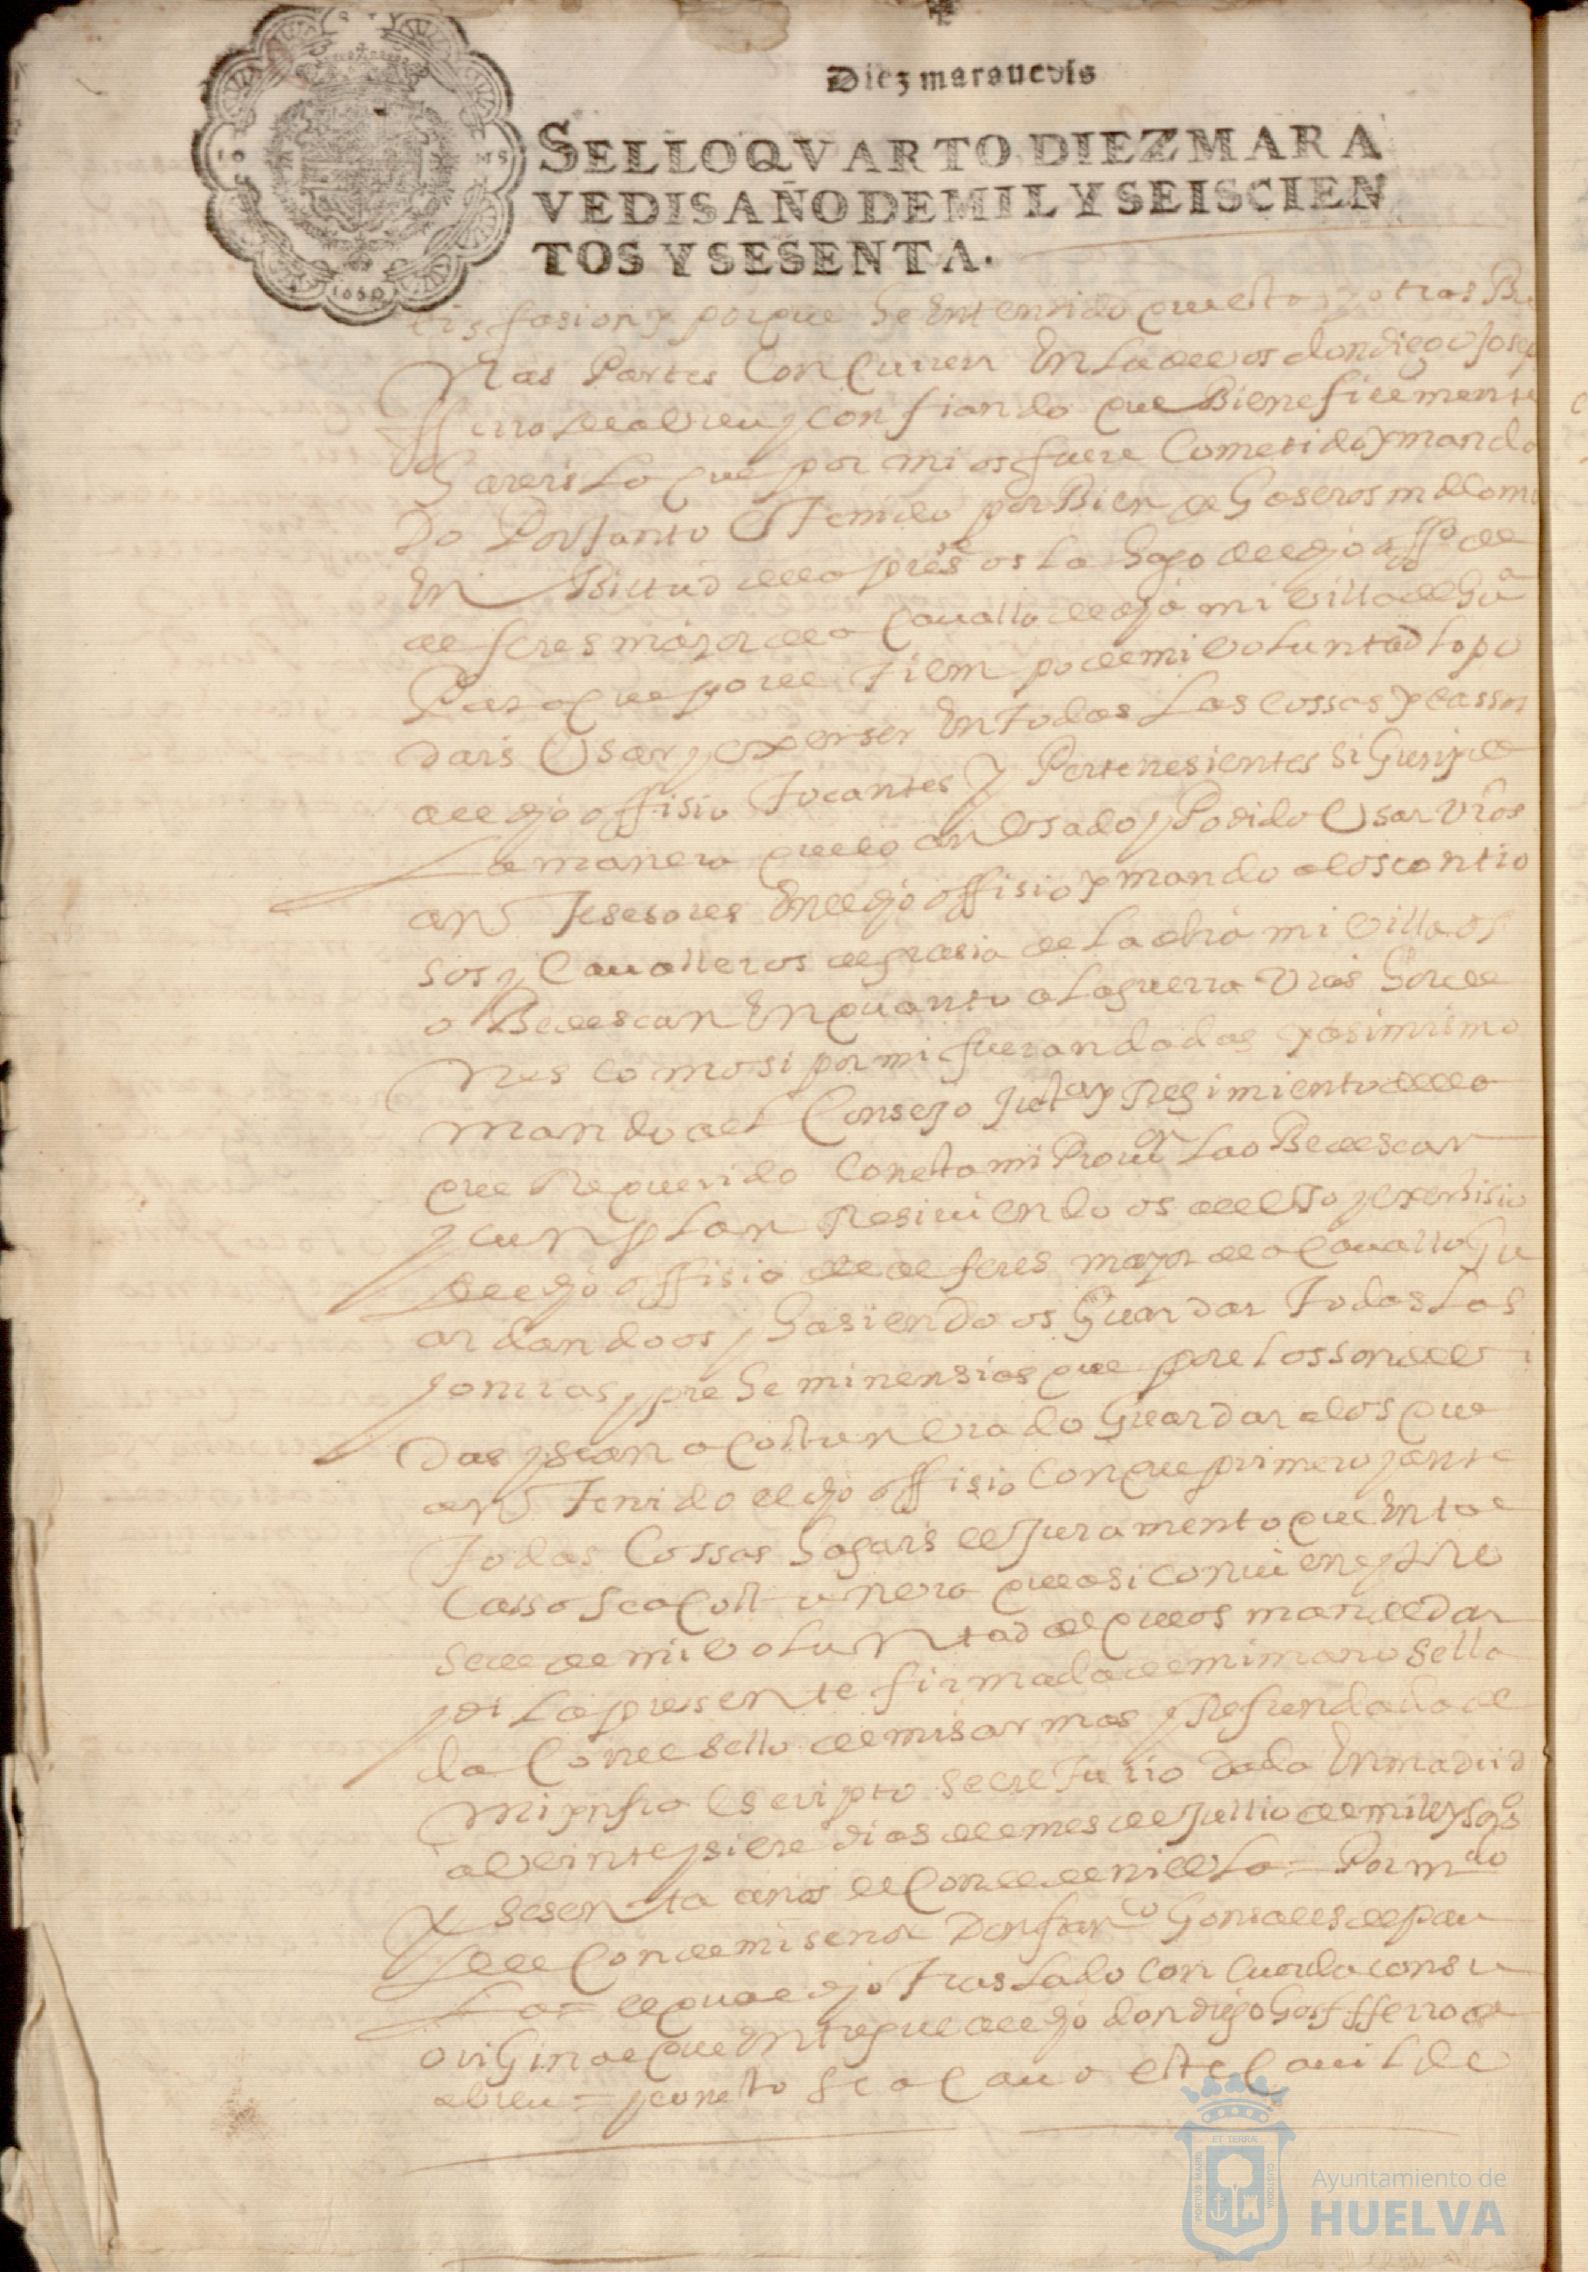 Diez maravedis
SELLO QVARTO DIEZ MARA
VEDIS AÑO DE MIL Y SEISCIEN
TOS Y SESENTA.
tisfasion y porque he entendido que estas y otras Bu
nas Partes Concurren En la de vos don diego Josep
fierro de abreu y confiando que Bien e fielmente
hareis Lo que por mi os fuere Cometido y manda
do Por tanto e tenido por Bien de haseros mrd como
En Birtud de la preste os la hago del dho offo de
alferes mayor de a Cavallo de dha mi villa de Gua
Para que por el tiempo de mi voluntad lo po
dais Usar y exerser En todas Las cossas y cassos
al dho offisio tocantes y Pertenesientes Sigun y de
La manera que lo an Usado y Podido Usar vros
an tesesores En el dho offisio y mando a los contio
sos y Cavalleros de grasia de La dha mi villa os
o Bedescan En quanto a La guerra vras horde
nes como si por mi fueran dadas y asimismo
mando al Consejo Justa y Regimiento de ella
que Requerido Con esta mi Provon La o Bedescan
y cunplan Resiviendo os al Uso y exersisio
del dho offisio de alferes mayor de a Cavallo Gu
ardandoos y hasiendo os Guardar todas Las
honrras y preheminensias que por el los son devi
das y sean acostunbrado Guardar a los que
an tenido el dho offisio Con que primero y ante
todas Cossas hagais el Juramento que En tal
Casso se acostunbra que asi conviene y Re
sede de mi voluntad de que os mande dar
y di La presente firmada de mi mano sella
da Con el sello de mis armas y Refrendada de
mi ynfra escripto secretario dada En madrid
a veinte y siete dias del mes de Jullio de mil y seis
y sesenta años el Conde de niebla = Por mdo
del Conde mi señor Don Franco Gonsales de pau
la = el qual dho traslado con cuerda con su
original que Entregue al dho don diego Josef fierro de
abreu = y con esto se acavo este Cavildo
Ayuntamiento de
HUELVA